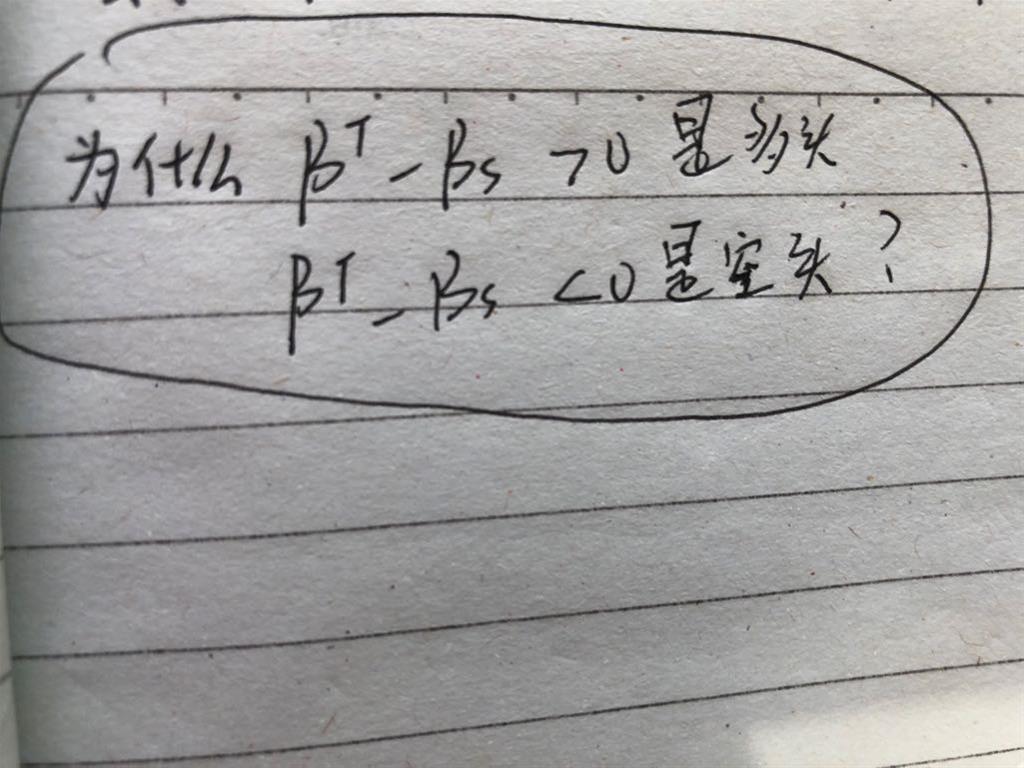 为什么 β^T - βs >0 是多头
β^T - βs <0 是空头?